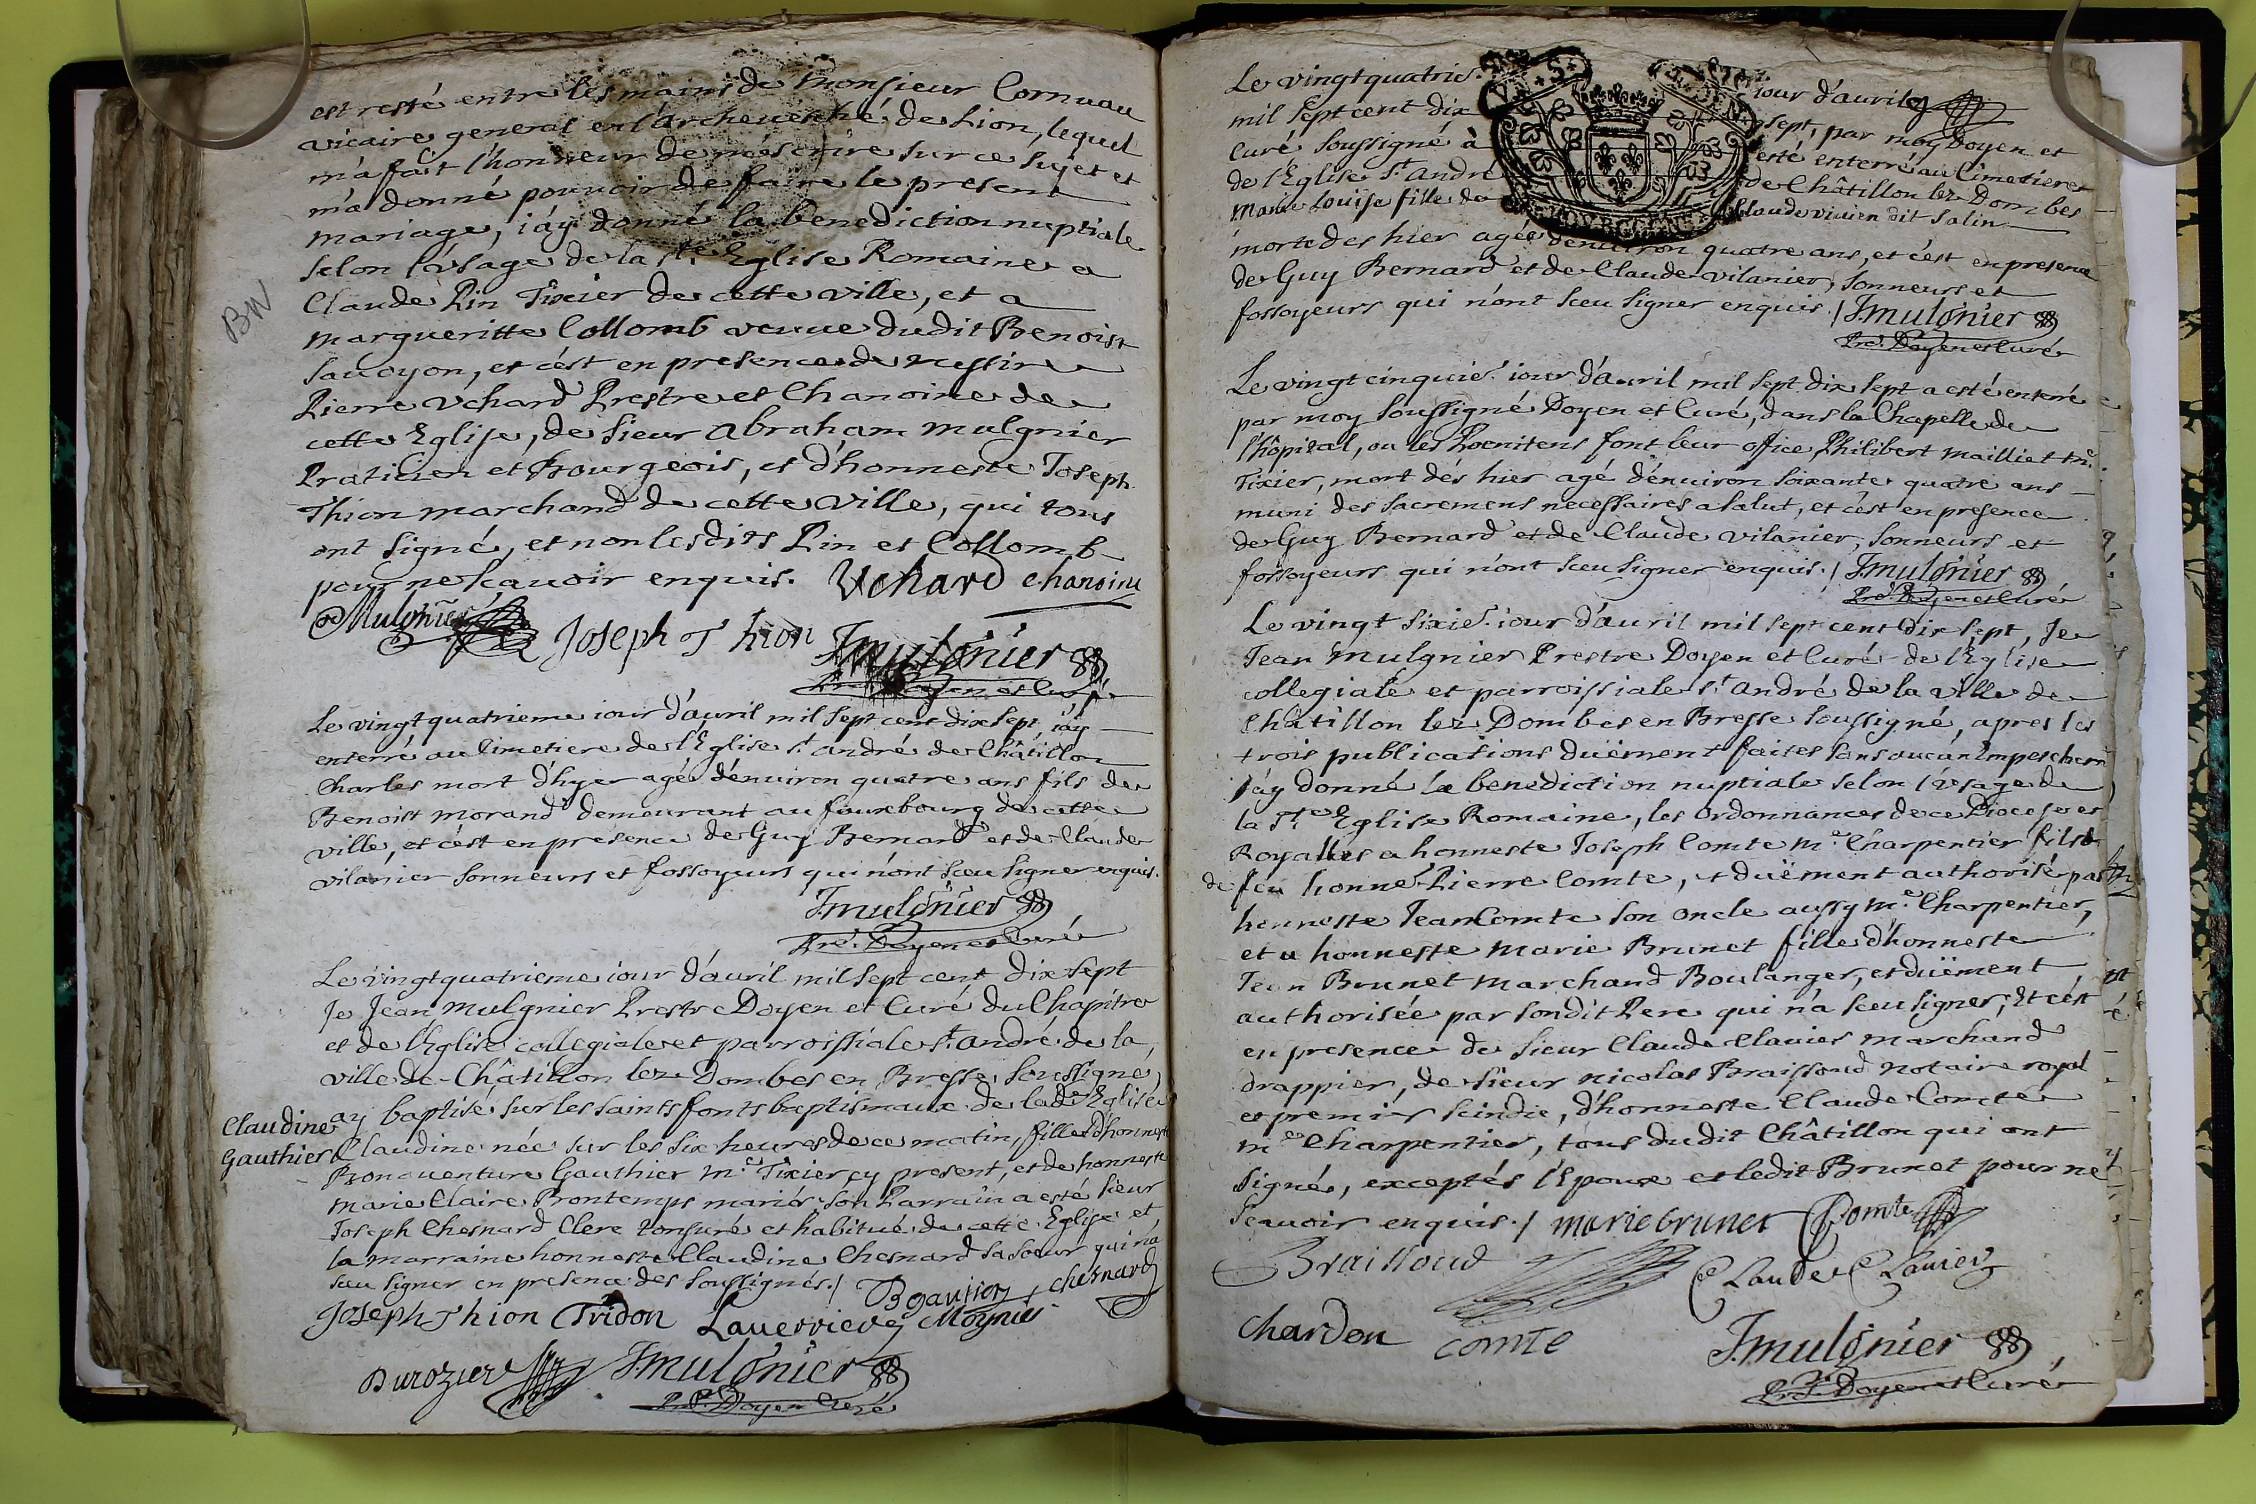 est resté entre les mains de monsieur Cornuau
vicaire general en l'archeuesché de Lion, lequel
m'a fait l'honneur de m'éscrire sur ce sujet et
m'a donné pouuoir de faire le present
mariage, i'áy donné la benediction nuptiale
selon l'vsage de la ste Eglise Romaine a
Claude Pin Tixier de cette ville, et a
margueritte Collomb veuue dudit Benoist
sauoyon, et c'ést en presence de messire
Pierre Vchard Prestre et Chanoine de
cette Eglise, de sieur abraham mulgnier
Praticien et Bourgeois, et d'honneste Joseph
Thion marchand de cette Ville, qui tous
ont signé, et non lesdits Pin et Collomb
pour ne scauoir enquis. Vchard chanoine
BN
Mulgnier Joseph Thion J. mulgnier
Pre. Doyen et Curé
Le vingt quatrieme iour d'auril mil sept cent dix sept i'áy
enterré au Cimetiere de l'Eglise st. andré de Châtillon
Charles mort d'hyer agé d'énuiron quatre ans fils de
Benoist morand demeurant au fauxbourg de cette
ville, et c'ést en presence de Guy Bernard et de Claude
vilanier sonneurs et fossoyeurs qui n'ónt sceu signer enquis.
J. mulgnier
Pre. Doyen et Curé
Le vingt quatrieme iour d'auril mil sept cent dix sept
Je Jean mulgnier Prestre Doyen et Curé du Chapitre
et de l'Eglise collegiale et parroissiale st. andré de la
ville de Châtillon lez Dombes en Bresse soussigné
Claudine
Gauthier
ay baptisé sur les saints fonts baptismaux de lade. Eglise
Claudine née sur les six heures de ce matin, fille d'honneste
Bonauenture Gauthier me. Tixier cy present, et de honneste
marie Claire Bontemps mariés, son Parrain a esté sieur
Joseph Chesnard Clerc tonsuré et habitué de cette Eglise et
la marraine honneste Claudine Chesnard sa soeur qui n'a
sceu signer en presence des soussignés./ B gautier chesnard
Joseph Thion Tridon Lauerriere Moynié
Durozier J. mulgnier
Pre. Doyen Curé
Le vingt quatrie. iour d'auril
mil sept cent dix sept, par moy Doyen et
Curé soussigné à esté enterré au Cimetiere
de l'Eglise st. andré de Châtillon lez Dombes
marie Louise fille de Claude viuien dit salin
morte des hier agée d'enuiron quatre ans, et c'ést en presence
de Guy Bernard et de Claude vilanier, sonneurs et
fossoyeurs qui n'ónt sceu signer enquis./ J. mulgnier
Pre. Doyen et Curé
Le vingt cinquie. iour d'auril mil sept dix sept a esté enterré
par moy soussigné Doyen et Curé, dans la Chapelle de
l'hôpital, ou les Poenitens font leur office Philibert mailliet me.
Tixier, mort dés hier agé d'énuiron soixante quatre ans
muni des sacremens necessaires a salut, et c'ést en presence
de Guy Bernard et de Claude vilanier, sonneurs et
fossoyeurs qui n'ónt sceu signer enquis./ J. mulgnier
Pre. Doyen et Curé
Le vingt sixie. iour d'auril mil sept cent dix sept, Je
Jean mulgnier Prestre Doyen et Curé de l'Eglise
collegiale et parroissiale st. andré de la ville de
Châtillon lez Dombes en Bresse soussigné, apres les
trois publications duëment faites sans aucun Empeschem
i'áy donné la benediction nuptiale selon l'vsage de
la ste. Eglise Romaine, les ordonnances de ce Diocese et
Royalles a honneste Joseph Comte me. Charpentier fils
de feu honne. Pierre Comte, et duëment authorisé par
honneste Jean Comte son oncle aussy me. Charpentier,
et a honneste marie Brunet fille d'honneste
Jean Brunet marchand Boulanger, et duëment
authorisée par sondit Pere qui n'a sceu signer, Et c'ést
en presence de sieur Claude Clauier marchand
drappier, de sieur nicolas Braissoud notaire royal
et premier scindic, d'honneste Claude Comte
me. Charpentier, tous dudit Châtillon qui ont
signés, exceptés l'Epoux et ledit Brunet pour ne
sçauoir enquis./ marie brunet Comte
Braissoud Claude Clauier
chardon comte J. mulgnier
Pre. Doyen et Curé